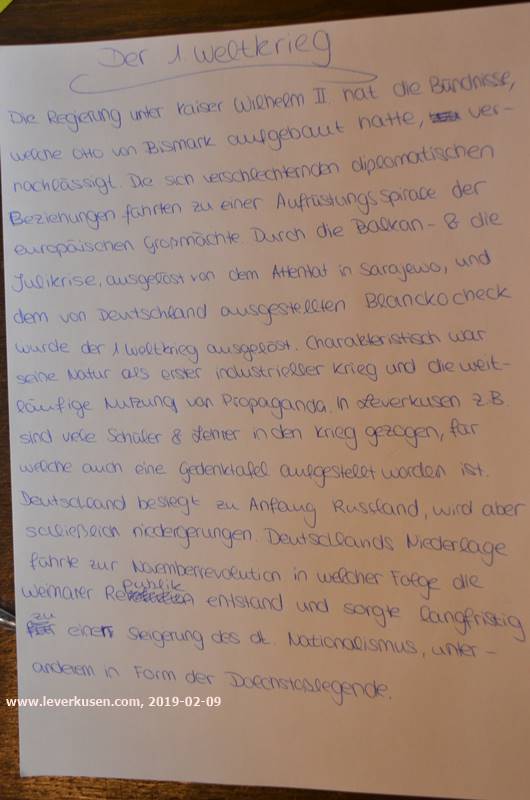 Der 1. Weltkrieg
Die Regierung unter Kaiser Wilhelm II. hat die Bündnisse,
welche Otto von Bismark aufgebaut hatte, ver-
nachlässigt. Die sich verschlechternden diplomatischen
Beziehungen führten zu einer Aufrüstungsspirale der
europäischen Großmächte. Durch die Balkan- & die
Julikrise, ausgelöst von dem Attentat in Sarajewo, und
dem von Deutschland ausgestellten Blanckocheck
wurde der 1 Weltkrieg ausgelöst. Charakteristisch war
seine Natur als erster industrieller Krieg und die weit-
läufige Nutzung von Propaganda. In Leverkusen z.B.
sind viele Schüler & Lehrer in den Krieg gezogen, für
welche auch eine Gedenktafel aufgestellt worden ist.
Deutschland besiegt zu Anfang Russland, wird aber
schließlich niedergerungen. Deutschlands Niederlage
führte zur Novemberrevolution in welcher Folge die
Weimarer Republik entstand und sorgte langfristig
zu einer Steigerung des dt. Nationalismus, unter-
anderem in Form der Dolchstoßlegende.
www.leverkusen.com, 2019-02-09